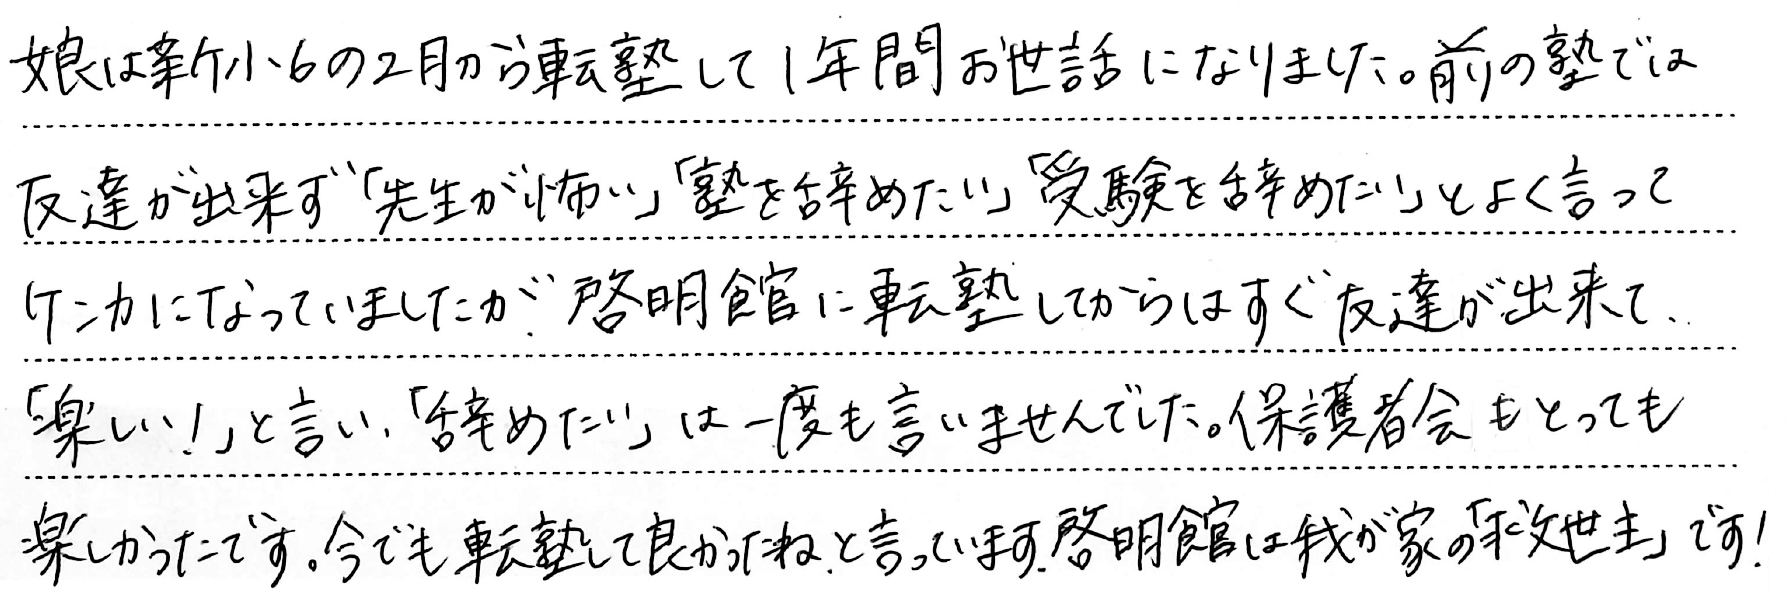 娘は新小6の2月から転塾して1年間お世話になりました。前の塾では
友達が出来ず「先生が怖い」「塾を辞めたい」「受験を辞めたい」とよく言って
ケンカになっていましたが、啓明館に転塾してからはすぐ友達が出来て、
「楽しい!」と言い、「辞めたい」は一度も言いませんでした。保護者会もとっても
楽しかったです。今でも転塾して良かったね、と言っています。啓明館は我が家の「救世主」です!